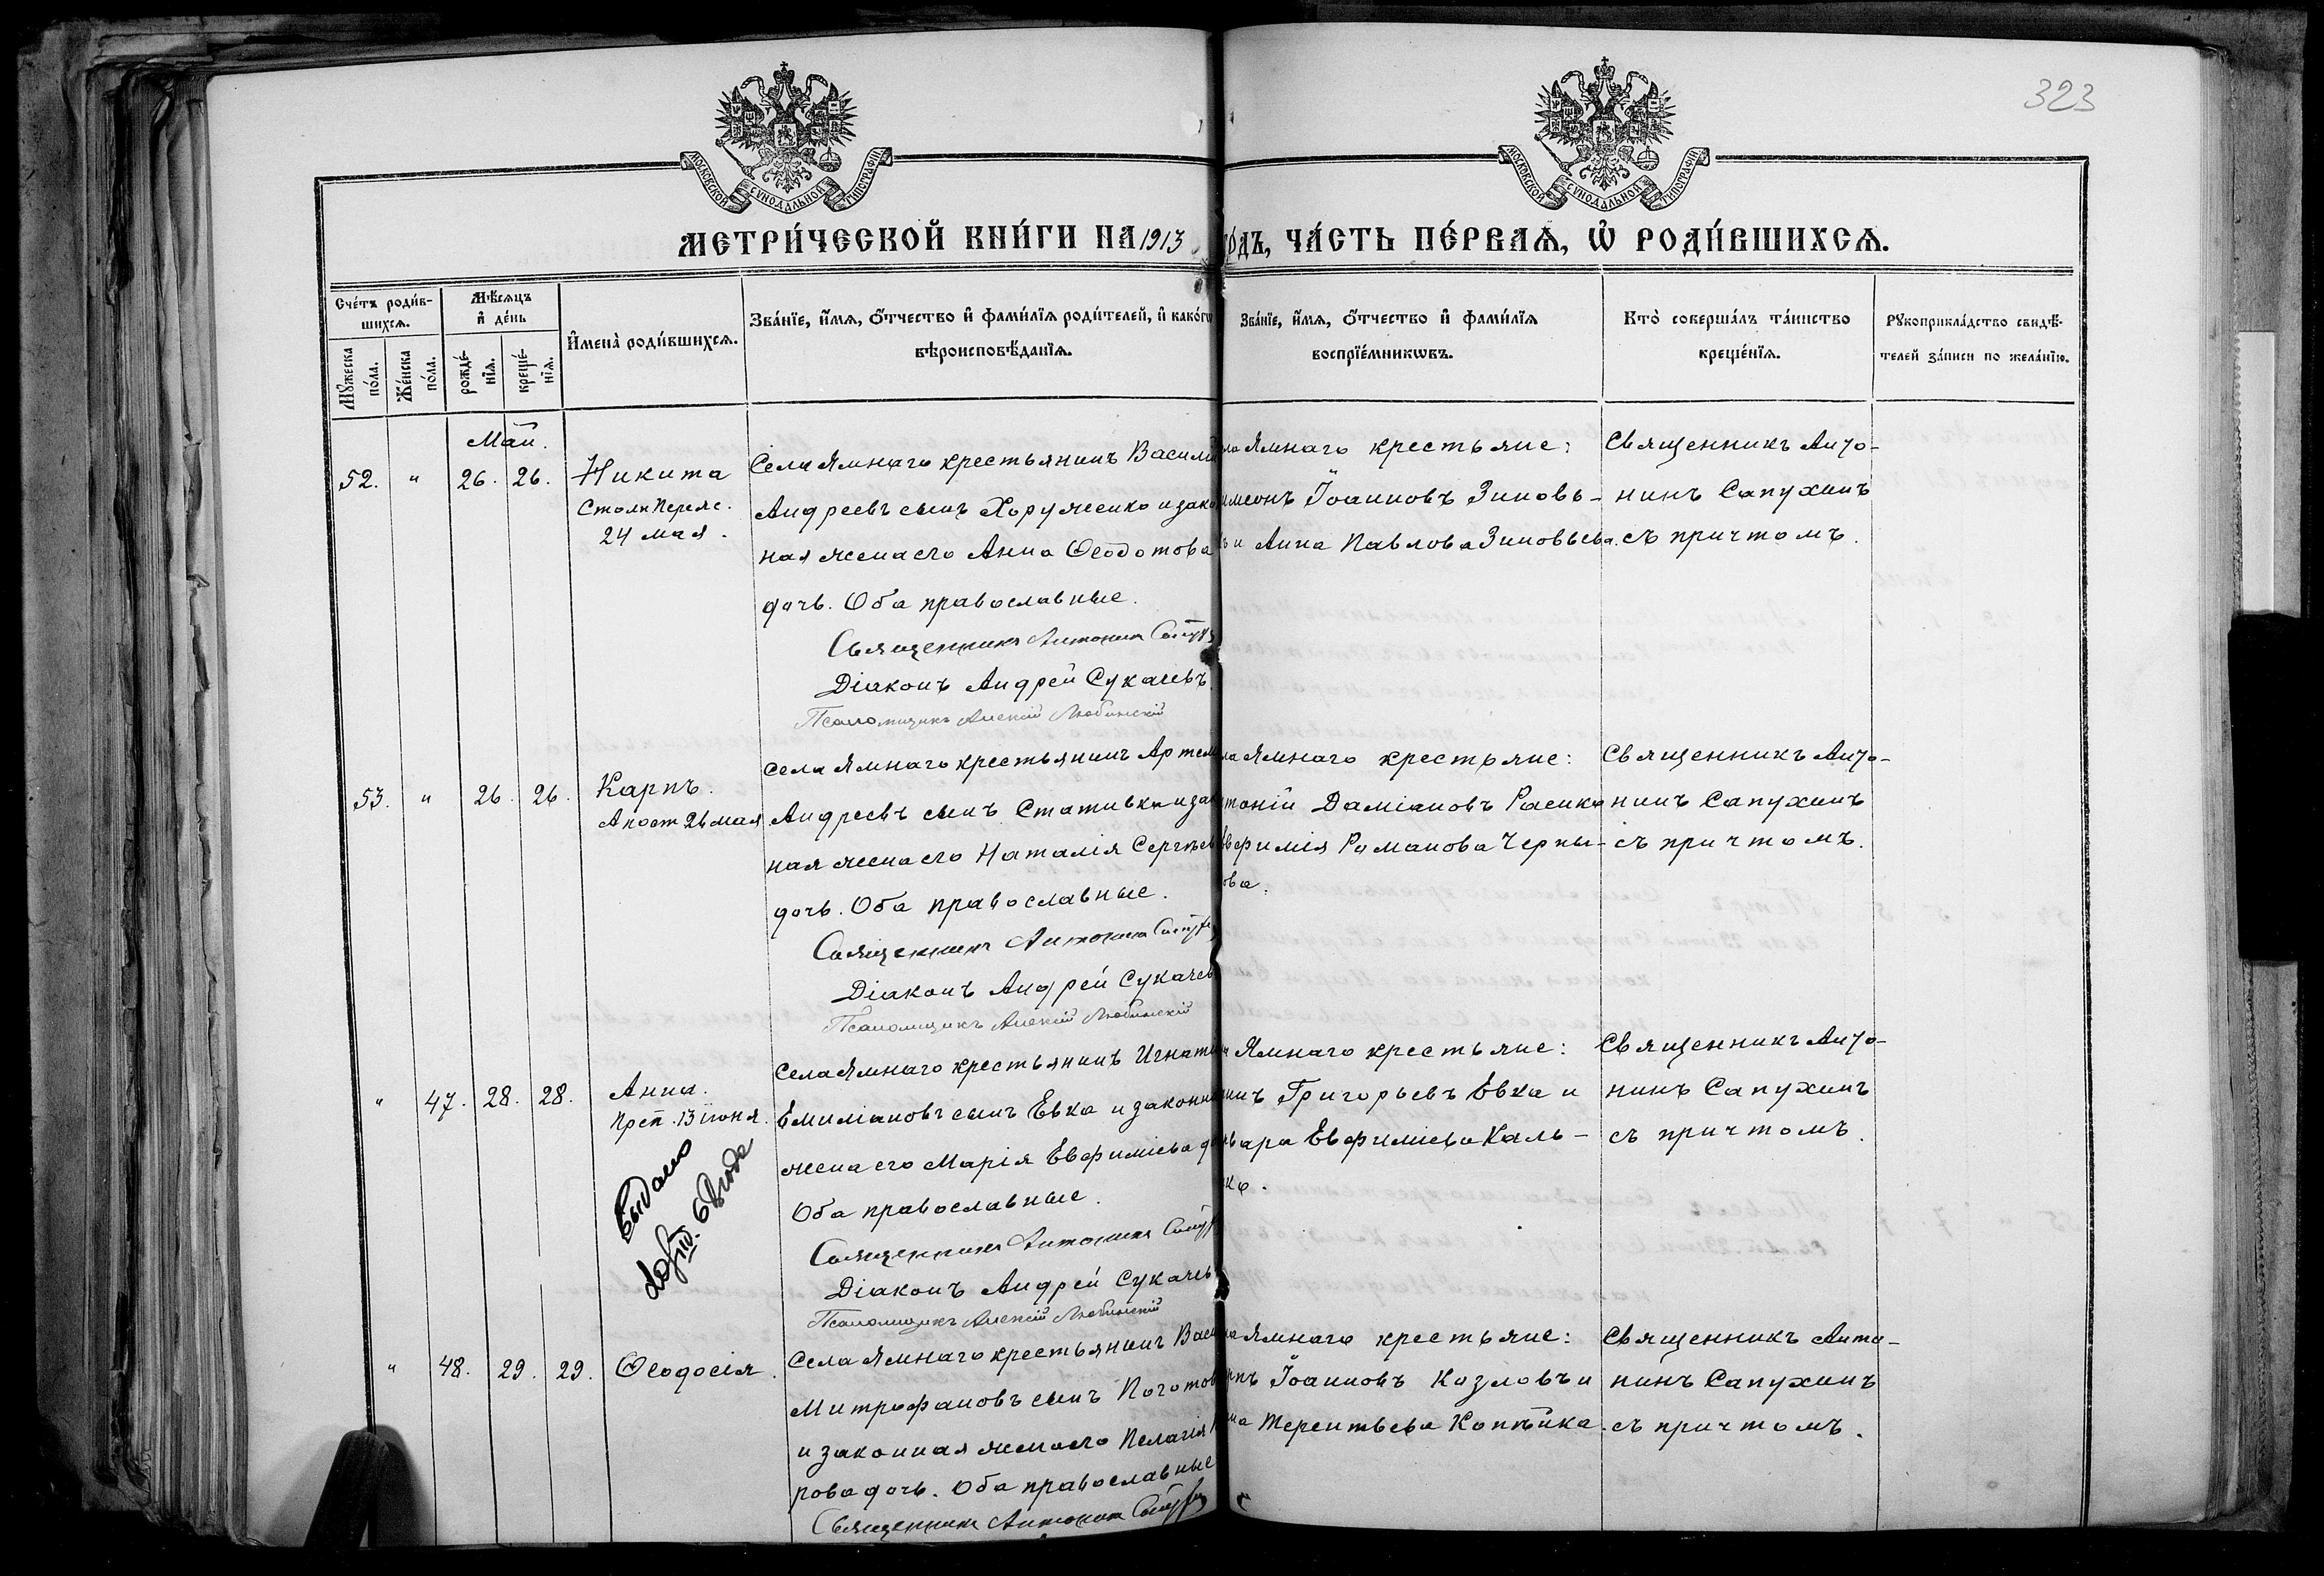 323
МОСКОВСКОЙ СѴНОДАЛЬНОЙ ТИПОГРАФІИ
МОСКОВСКОЙ СѴНОДАЛЬНОЙ ТИПОГРАФІИ
МЕТРИ́ЧЕСКОЙ КНИ́ГИ НА 1913
ГО́ДЪ, ЧА́СТЬ ПЕ́РВАЯ, Ѡ҆ РОДИ́ВШИХСЯ.
Сче́тъ роди́в-
шихся.
Мꙋ́жеска
по́ла.
Же́нска
по́ла.
Мѣ́сяцъ
и҆ де́нь
рожде́-
нїя.
креще́-
нїя.
И҆мена̀ роди́вшихся.
Зва́нїе, и҆́мя, ѻ҆́тчество и҆ фами́лїя роди́телей, и҆ како́гѡ
вѣроисповѣ́данїя.
Зва́нїе, и҆́мя, ѻ҆́тчество и҆ фами́лїя
воспрїе́мникѡвъ.
Кто̀ соверша́лъ та́инство
креще́нїя.
Рꙋкоприкла́дство свидѣ́-
телей за́писи по жела́нїю.
Май.
52. " 26. 26. Никита
Столп Переяс.
24 мая.
Села Ямнаго крестьянинъ Василій
Андреевъ сынъ Хоруженко и зако
ная жена его Анна Ѳеодотова
дочь. Оба православные.
Священникъ Антонинъ Сапух
Діаконъ Андрей Сукачевъ.
Псаломщикъ Алексій Любинскій
ла Ямнаго крестьяне:
имеонъ Іоанновъ Зиновь-
ъ и Анна Павлова Зиновьева.
Священникъ Анто-
нинъ Сапухинъ
съ причтомъ.
53. " 26. 26. Карпъ.
Апост 26 мая
Села Ямнаго крестьянинъ Артем
Андреевъ сынъ Стативка и зак
ная жена его Наталія Сергѣев
дочь. Оба православные.
Священникъ Антонинъ Сапух
Діаконъ Андрей Сукачев
Псаломщикъ Алексій Любинскій
ла Ямнаго крестьяне:
тоній Даміановъ
Евфимія Романова Черны-
ова.
Священникъ Анто-
нинъ Сапухинъ
съ причтомъ.
" 47. 28. 28. Анна.
Преп. 13 іюня.
Выдано
Села Ямнаго крестьянинъ Игнат
Емиліановъ сынъ Евка и законн
жена его Марія Евфиміева д
Оба православные.
Священникъ Антонинъ Сапух
Діаконъ Андрей Сукачев
Псаломщикъ Алексій Любинскій
Ямнаго крестьяне:
инъ Григорьевъ Евка и
вара Евфиміева Каль-
ко.
Священникъ Анто-
нинъ Сапухинъ
съ причтомъ.
" 48. 29. 29. Ѳеодосія.
Села Ямнаго крестьянинъ Васи
Митрофановъ сынъ Поготов
и законная жена его Пелагія
рова дочь. Оба православные
Священникъ Антонинъ Сапухин
ла Ямнаго крестьяне:
рпъ Іоанновъ Козловъ и
на Терентьева Копѣйка.
Священникъ Анто-
нинъ Сапухинъ
съ причтомъ.